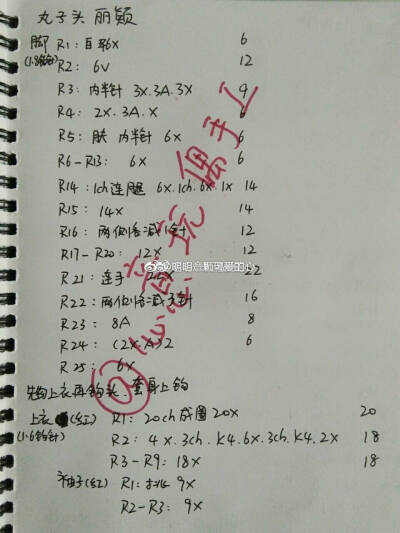 丸子头 丽颖
脚 R1: 6X 6
(1.8钩针) R2: 6V 12
R3: 内半针 3X.3A.3X 9
R4: 2X.3A.X 6
R5: 肤 内半针 6X 6
R6-R13: 6X 6
R14: 1ch连腿 6X.1ch.6X.1X 14
R15: 14X 14
R16: 两侧各减1针 12
R17-R20: 12X 12
R21: 连手 22
R22: 两侧各减3针 16
R23: 8A 8
R24: (2X.A)2 6
R25: 6X
先钩上衣再钩头,套身上钩
上衣(红) R1: 20ch成圈20X 20
(1.6钩针) R2: 4X.3ch.k4.6X.3ch.k4.2X 18
R3-R9: 18X 18
袖子(红) R1: 挑9X
R2-R3: 9X
@心意玩偶手工
@明明